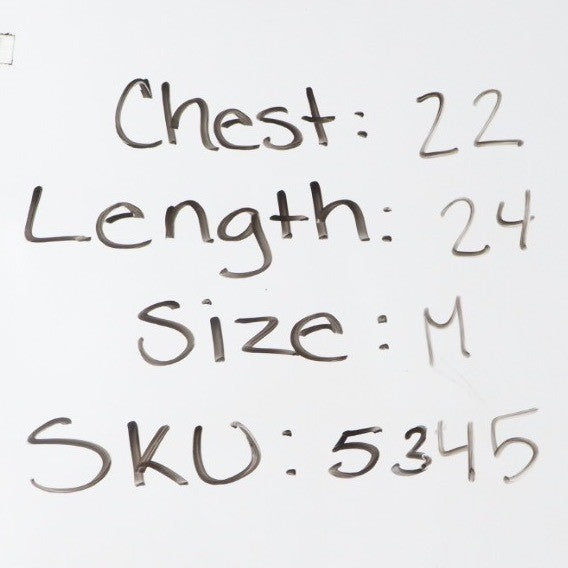 Chest: 22
Length: 24
Size: M
SKU: 5345